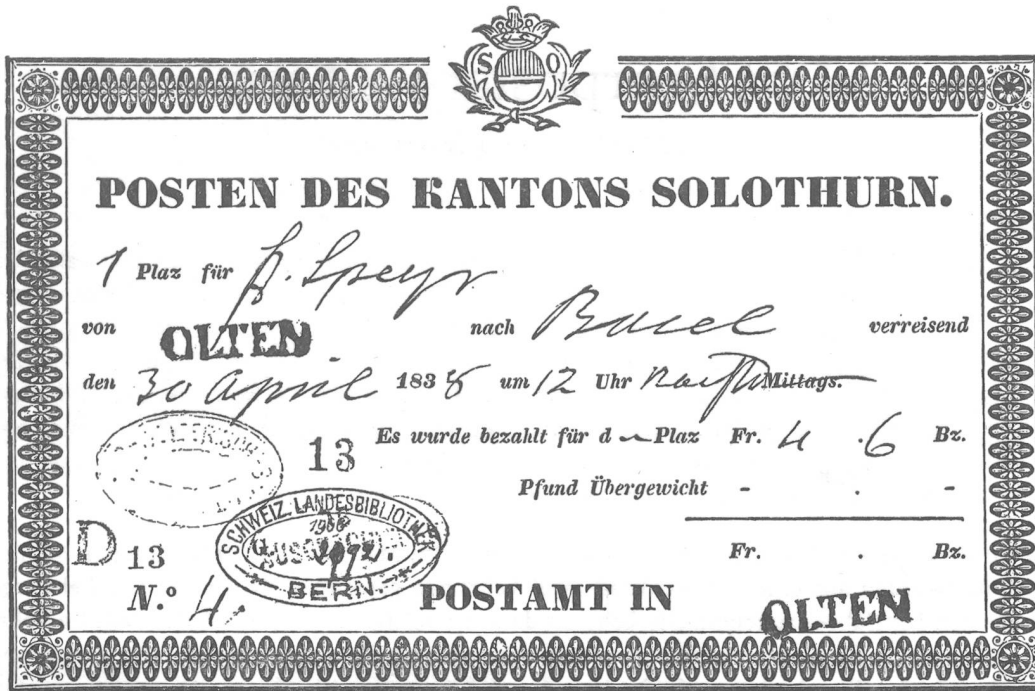 S O
POSTEN DES KANTONS SOLOTHURN.
1 Plaz für Speyr
von OLTEN nach Basel verreisend
den 30 April 1838 um 12 Uhr Mittags.
13 Es wurde bezahlt für d Plaz Fr. 4 . 6 Bz.
Pfund Übergewicht - . -
SCHWEIZ. LANDESBIBLIOTHEK
BERN.
D 13 Fr. . Bz.
N.º 4. POSTAMT IN OLTEN